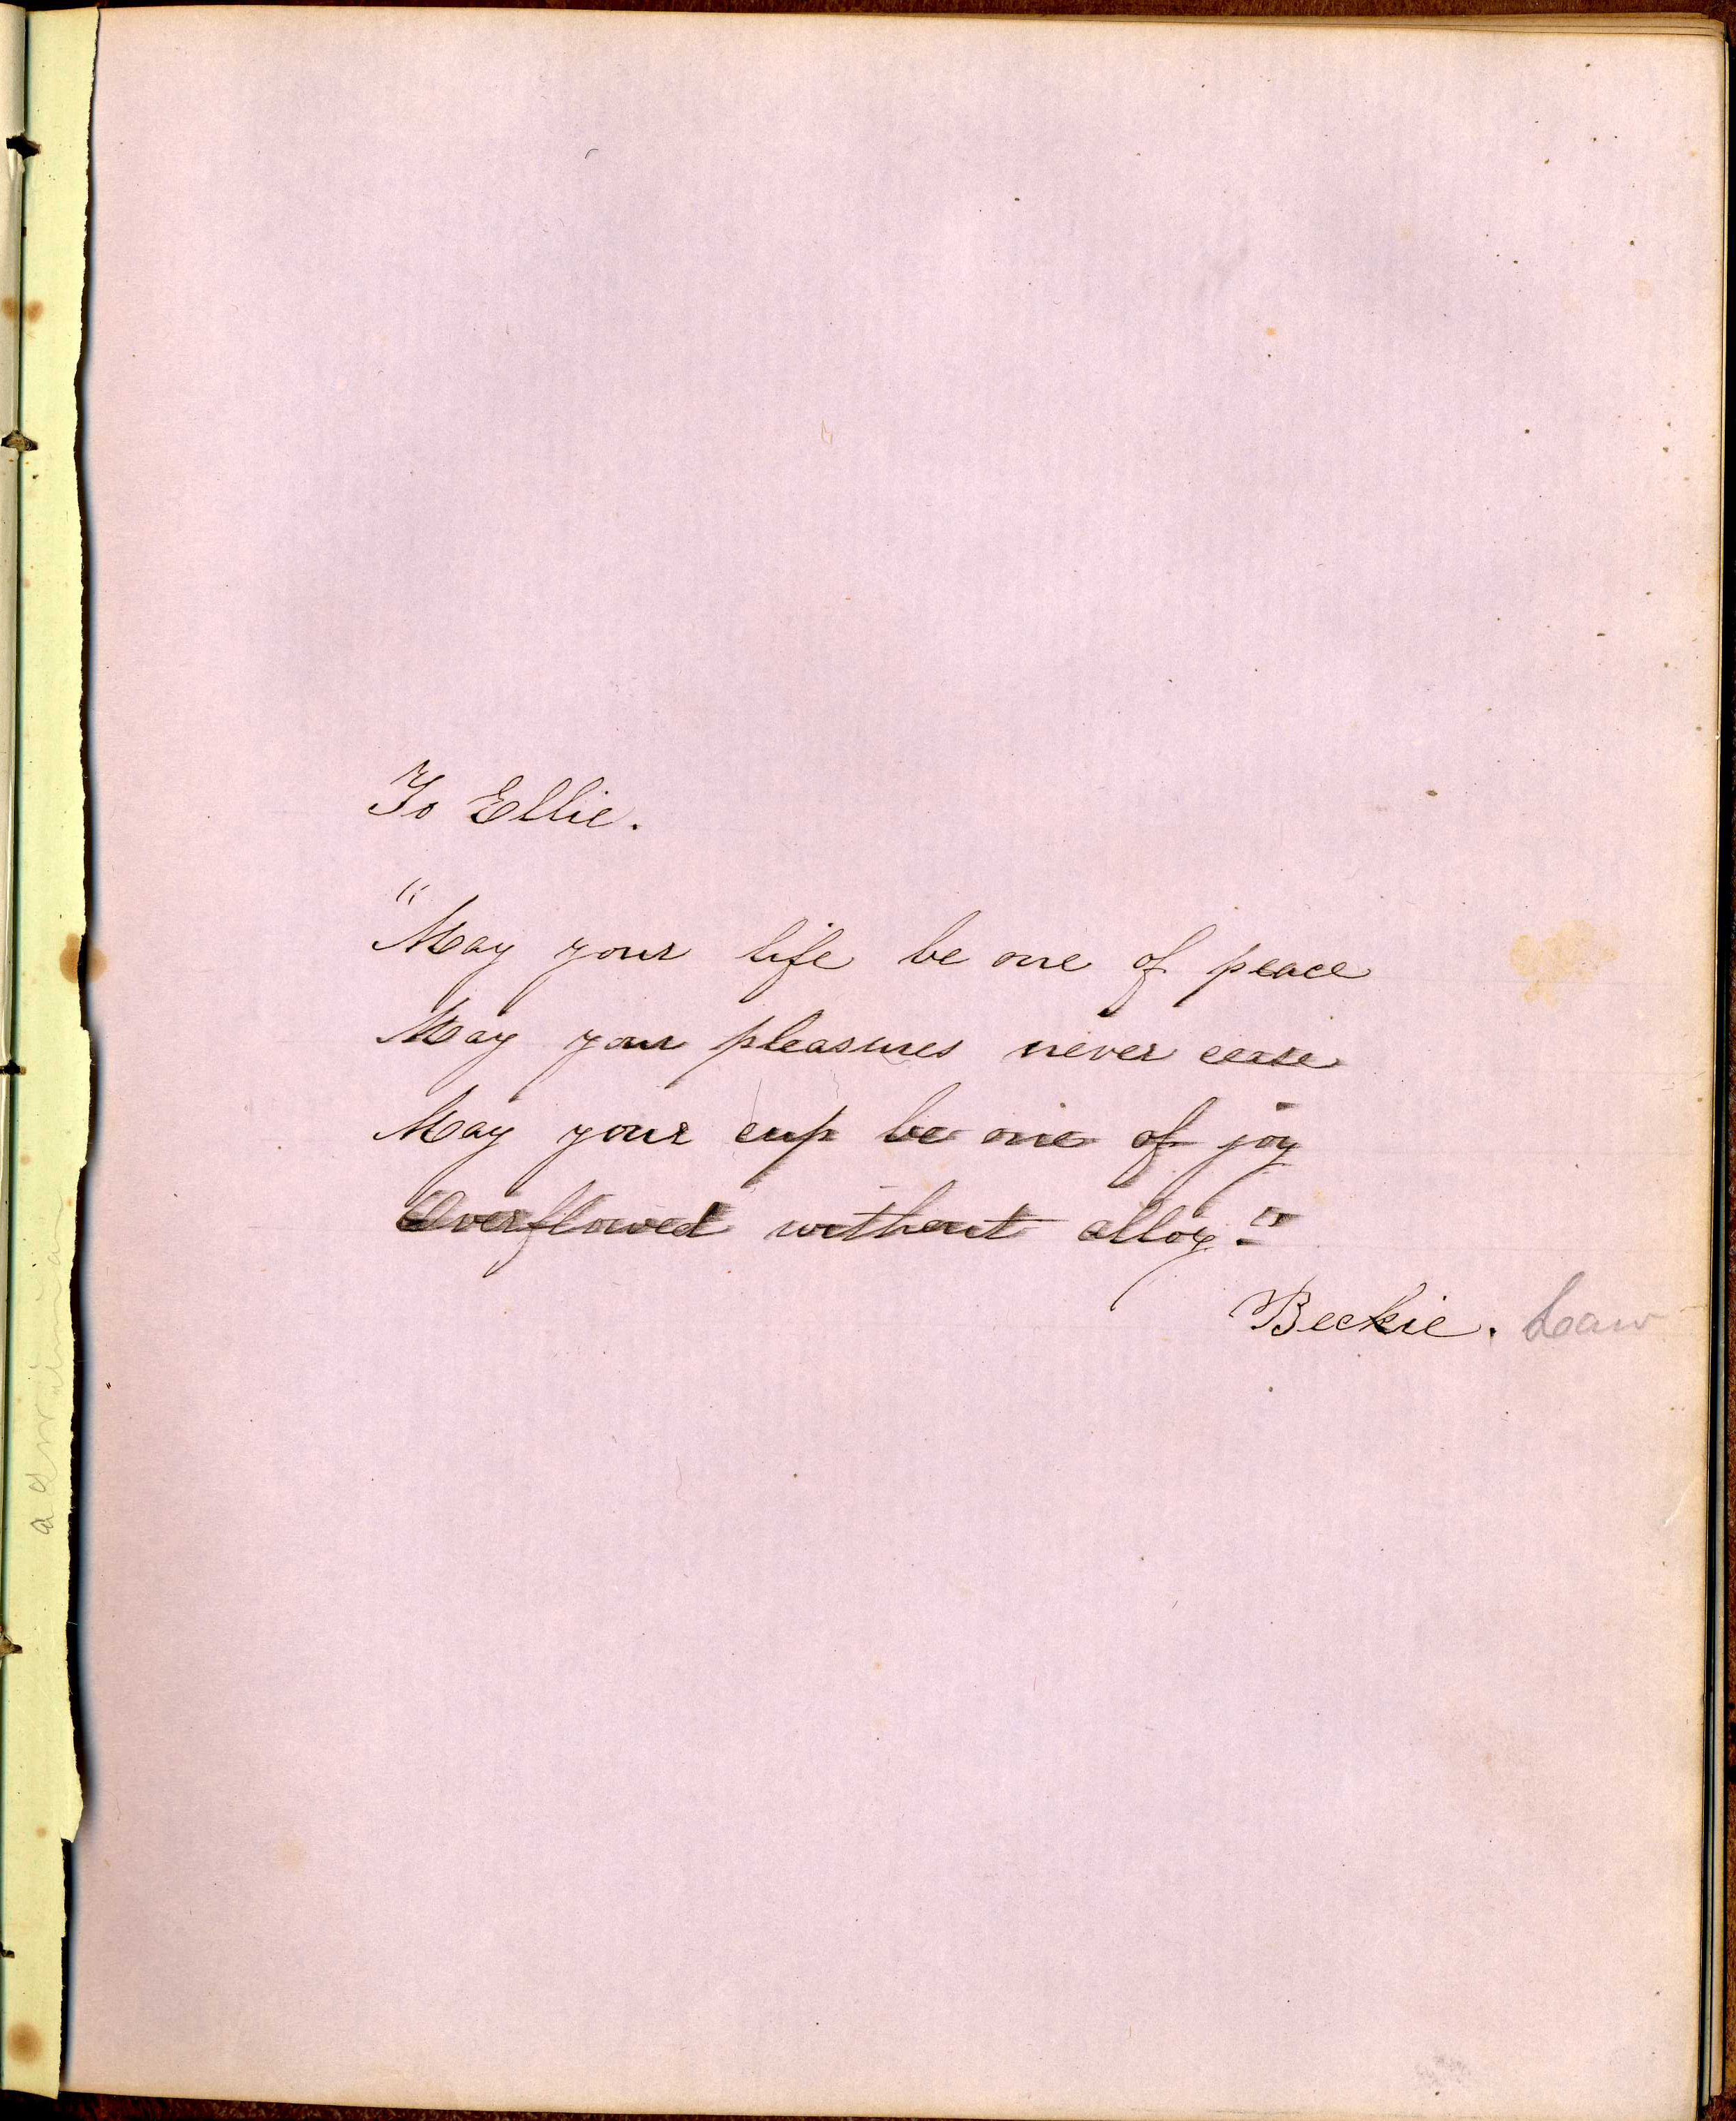 To Ellie.
"May your life be one of peace
May your pleasures never cease
May your cup be one of joy
Overflowed without alloy."
Beckie. Law